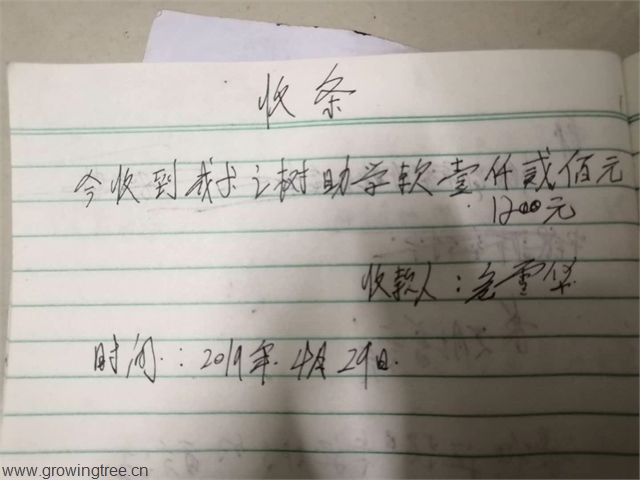 收条
今收到成长之树助学款壹仟贰佰元
1200元
收款人:
时间:2019年4月29日.
www.growingtree.cn